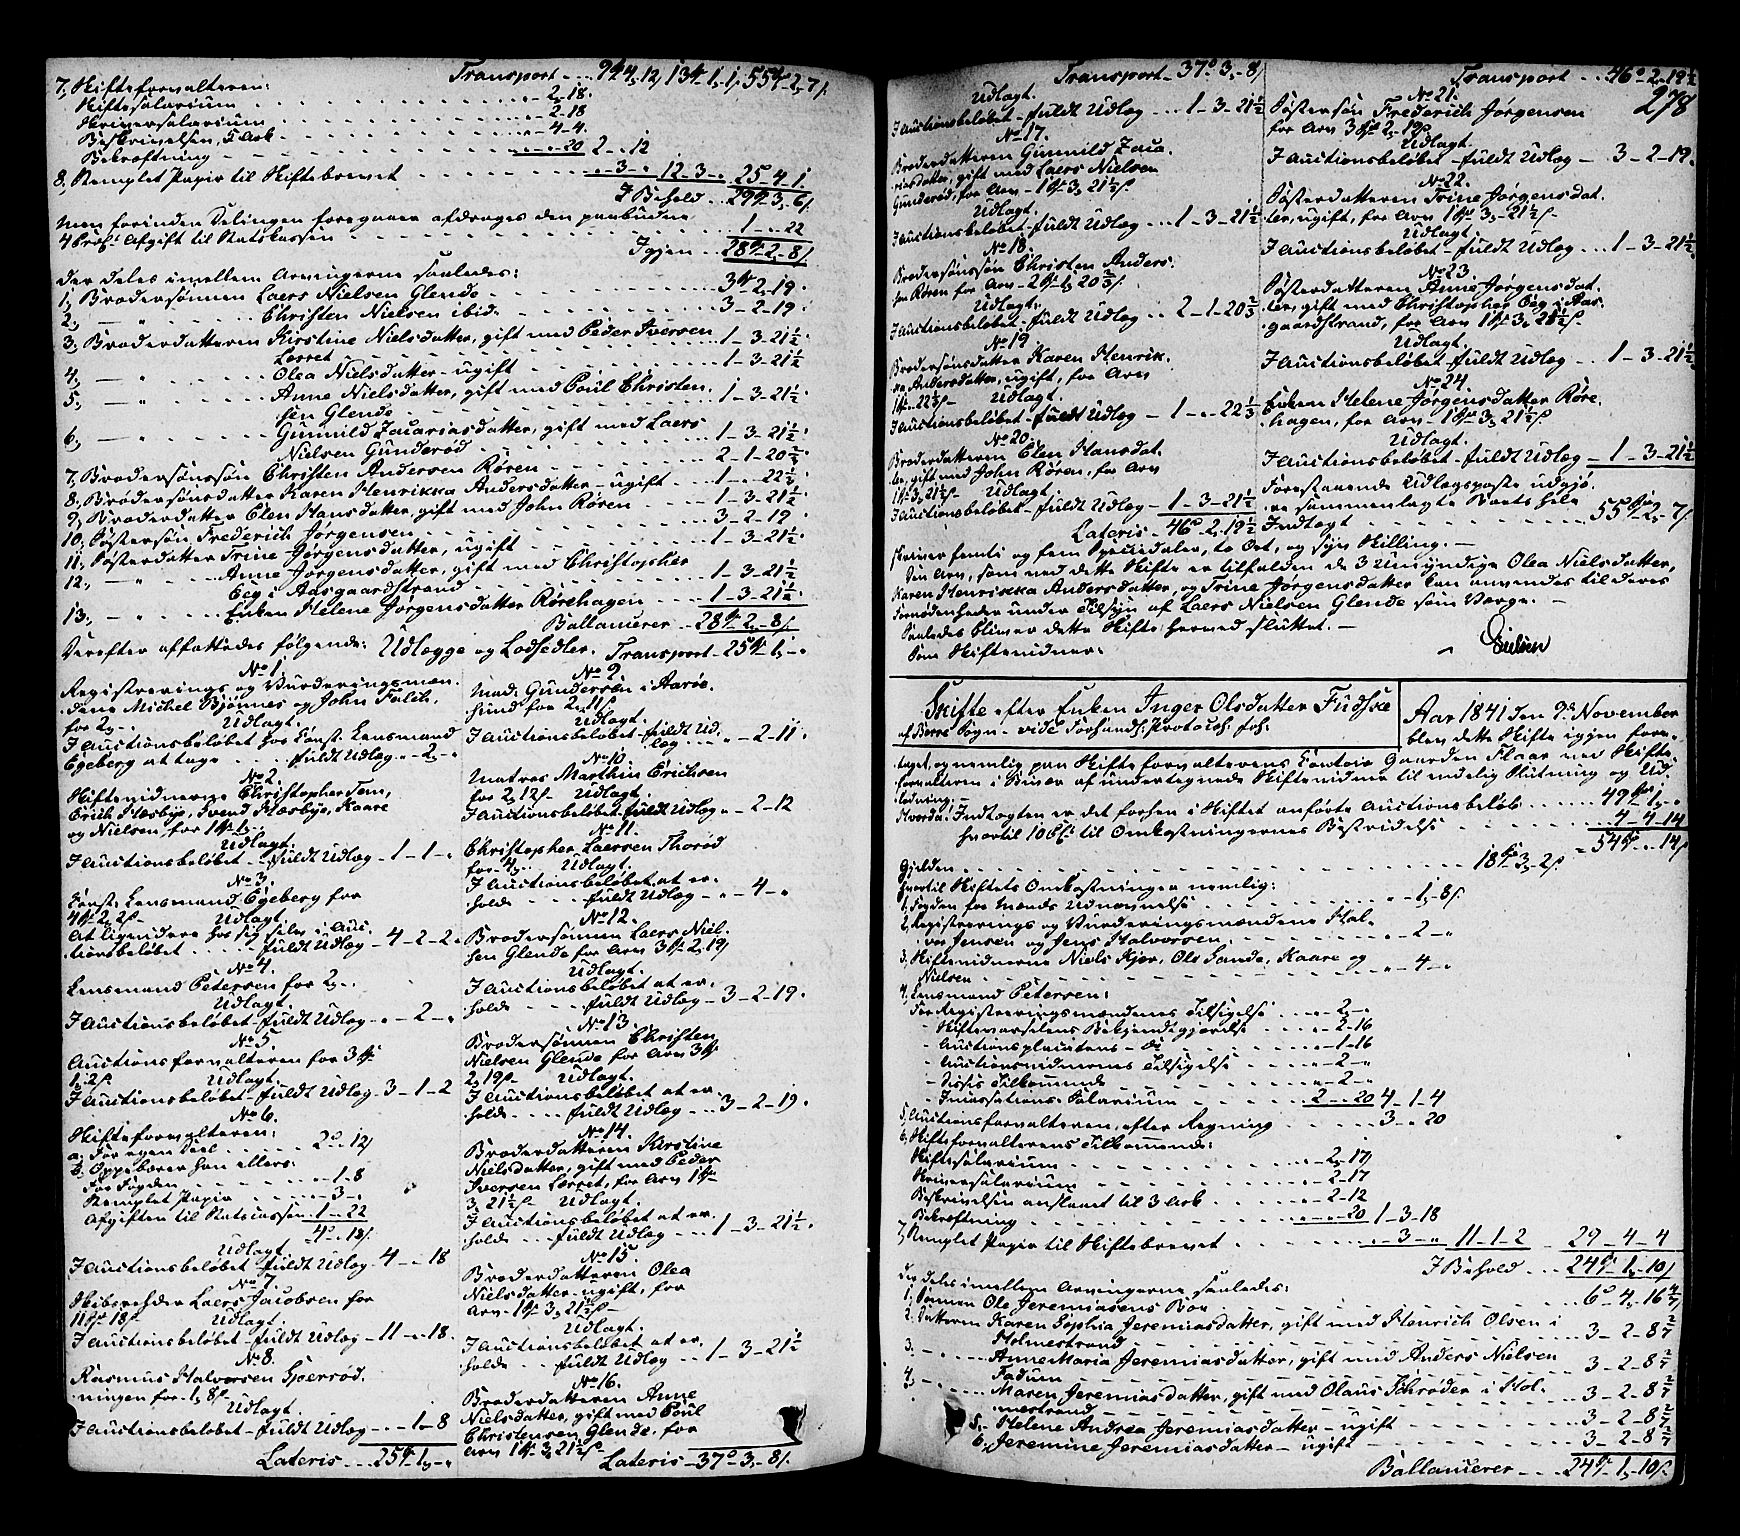 Transport - - 94 4, 12, 134 1, 1, 55 2, 7
7, Skifteforvalteren:
Skiftesalarium - - - 2, 18.
Skriversalarium - - - 2 - 18
Beskrivelsen, 5 Ark - - - 4 - 4.
Bekræftning - - - 20 2 - 12
8, Stemplet Papir til Skiftebrevet - - - 3 - 12 - 3 - 25 4 1.
I Behold - - 29 3, 6
men forinden Delingen foregaaer afdrages den paabudne
4 Afgift til Statskassen - - - 1 - 22
Igjen - - 28 2, 8
der deles imellem Arvingerne saaledes:
1, Brodersønnen Laers Nielsen Glende - - 3 2, 19.
2, — " Christen Nielsen ibid. - - 3 - 2 - 19
3, Broderdatteren Kirstine Nielsdatter, gift med Peder Iversen
Lørret - - 1 - 3 - 21½
4, — " Olea Nielsdatter - ugift - - 1 - 3 - 21½
5, — " Anne Nielsdatter, gift med Poul Christen
sen Glende - - 1 - 3 - 21½
6, — " Gunnild Zacariasdatter, gift med Laers
Nielsen Gunderød - - 1 - 3 - 21½
7, Brodersønssøn Christen Andersen Røren - - 2 - 1 - 20⅔
8, Brodersønsdatter Karen Henrikka Andersdatter - ugift - - 1 - " - 22⅓
9, Broderdatter Elen Hansdatter, gift med John Røren - - 1 - 3 - 21½
10, Søstersøn Frederich Jørgensen - - 3 - 2 - 19
11, Søsterdatter Trine Jørgensdatter, ugift - - 1 - 3 - 21½
12, — " Anne Jørgensdatter, gift med Christopher
Eeg i Aasgaardstrand - - 1 - 3 - 21½
13, — " Enken Helene Jørgensdatter Rørehagen - - 1 - 3 - 21½
Ballancerer - - 28 2, 8
Derefter affattedes følgende: Udlægge og Lodsedler. Transport - 25 1, -
No 1.
Registrerings og Vurderingsmæn-
dene Michel Bjønnes og John Falch,
for 2, -
Udlagt.
I Auctionsbeløbet hos Const. Lensmand
Egeberg at tage - - fuldt Udlæg - 2 -
No 2.
Skiftevidnerne Christopher Sem,
Erich Næsbye, Svend Næsbye, Kaare
og Nielsen, for 1 1, -
Udlagt.
I Auctionsbeløbet - fuldt Udlæg - 1 - 1 -
No 3.
Const. Lensmand Egeberg for
4 2, 2
Udlagt
At liqvidere hos sig selv i Auc-
tionsbeløbet - - fuldt Udlæg - 4 - 2 - 2
No 4.
Lensmand Petersen for 2, -
Udlagt.
I Auctionsbeløbet - fuldt Udlæg - " - 2 -
No 5.
Auctionsforvalteren for 3
1, 2
Udlagt.
I Auctionsbeløbet - fuldt Udlæg - 3 - 1 - 2
No 6.
Skifteforvalteren:
a, For egen Deel - - 2 - 12
b, Oppebærer han ellers:
For Fogden - - - 1 - 8
Stemplet Papir - - - 3 -
Afgiften til Statscassen - 1 - 22
4 - 18
Udlagt
I Auctionsbeløbet - fuldt Udlæg - 4 - - 18
No 7.
Skibsrheder Laers Jacobsen for
11 18
Udlagt.
I Auctionsbeløbet - fuldt Udlæg - 11 - - 18.
No 8.
Rasmus Halvorsen Gjerrød-
ningen for 1, 8
Udlagt.
I Auctionsbeløbet - fuldt Udlæg - - 1 - 8
Lateris - - 25 1, -
No 9
Mad. Gundersen i Aarøe-
sund for 2, 11
Udlagt.
I Auctionsbeløbet - fuldt Ud-
læg - - - 2 - 11.
No 10.
Matros Marthin Erichsen
for 2, 12
Udlagt.
I Auctionsbeløbet fuldt Udlæg - 2 - 12
No 11.
Christopher Laersen Thorød
for 4, -
Udlagt.
I Auctionsbeløbet at er-
holde - - fuldt Udlæg - " - 4 - "
No 12.
Brodersønnen Laers Niel-
sen Glende for Arv 3 2, 19
Udlagt.
I Auctionsbeløbet at er-
holde - - fuldt Udlæg - 3 - 2 - 19.
No 13.
Brodersønnen Christen
Nielsen Glende for Arv 3
2, 19
Udlagt.
I Auctionsbeløbet at er-
holde - - fuldt Udlæg - - 3 - 2 - 19.
No 14.
Broderdatteren Kirstine
Nielsdatter, gift med Peder
Iversen Lørret, for Arv 1
3, 21½
Udlagt.
I Auctionsbeløbet at er-
holde - - fuldt Udlæg - - 1 - 3 - 21½.
No 15.
Broderdatteren Olea
Nielsdatter - ugift, for
Arv - 1 3, 21½
Udlagt.
I Auctionsbeløbet at er-
holde - - fuldt Udlæg - - 1 - 3 - 21½
No 16.
Broderdatteren Anne
Nielsdatter, gift med Poul
Christensen Glende, for
Arv 1 3, 21½
Lateris - 37 3, 8
Transport - 37 3, - 8
Udlagt.
I Auctionsbeløbet - fuldt Udlæg - - 1 - 3 - 21½
No 17.
Broderdatteren Gunnild Zaca-
riasdatter, gift med Laers Nielsen
Gunderød, for Arv - 1 3, 21½
Udlagt.
I Auctionsbeløbet - fuldt Udlæg - - 1 - 3 - 21½
No 18.
Brodersønssøn Christen Anders-
sen Røren for Arv - 2 1, 20⅔
Udlagt.
I Auctionsbeløbet - fuldt Udlæg - - 2 - 1 - 20⅔
No 19
Brodersønsdatter Karen Henrik-
ka Andersdatter, ugift, for Arv
1 - 22⅓
Udlagt.
I Auctionsbeløbet - fuldt Udlæg - 1 - - 22⅓
No 20.
Broderdatteren Elen Hansdat-
ter, gift med John Røren, for Arv
1 3, 21½
Udlagt.
I Auctionsbeløbet - fuldt Udlæg - 1 - 3 - 21½
Lateris - 46 2, 19½
Transport - - 46 2, 19½
278
No 21.
Søstersøn Frederich Jørgensen
for Arv 3 2, 19
Udlagt.
I Auctionsbeløbet - fuldt Udlæg - 3 - 2 - 19.
No 22.
Søsterdatteren Trine Jørgensdat-
ter, ugift, for Arv 1 3, 21½
Udlagt.
I Auctionsbeløbet - fuldt Udlæg - - 1 - 3 - 21½
No 23.
Søsterdatteren Anne Jørgensdat-
ter, gift med Christopher Eeg i Aas-
gaardstrand, for Arv 1 3, 21½
Udlagt.
I Auctionsbeløbet - fuldt Udlæg - - 1 - 3 - 21½
No 24.
Enken Helene Jørgensdatter Røre-
hagen, for Arv - 1 3, 21½
Udlagt.
I Auctionsbeløbet - fuldt Udlæg - 1 - 3 - 21½
Forestaaende Udlægsposter udgjø-
re sammenlagte Boets hele
Indtægt - - - 55 2, 7
skriver femti og fem Speciedaler, to Ort, og syv Skilling. —
Den Arv, som ved dette Skifte er tilfalden de 3 Umyndige Olea Nielsdatter,
Karen Henrikka Andersdatter, og Trine Jørgensdatter kan anvendes til deres
Fornødenheder under Tilsyn af Laers Nielsen Glende som Værge. —
Saaledes bliver dette Skifte herved sluttet. —
Som Skiftevidner:
Nielsen
Skifte efter Enken Inger Olsdatter Fudske
af Borre Sogn - vide Forhandl: Protocol: fol:
Aar 1841 den 9de November
blev dette Skifte igjen fore-
taget, og nemlig paa Skifteforvalterens Contoir Gaarden Flaar ved Skifte-
forvalteren i Bivær af undertegnede Skiftevidner til endelig Slutning og Ud-
lodning:
Hvorda: Indtægten er det forhen i Skiftet anførte Auctionsbeløb - - - 49 1, -
hvortil 10 til Omkostningernes Bestridelse - - - 4 - 4 - 14
= 54 - 14
Gjelden - - - 18 3, 2
hvortil Skiftets Omkostninger nemlig:
1, Fogden for Mænds Udnævnelse - - - " - 1, 8
2, Registrerings og Vurderingsmændene Hal-
vor Jensen og Jens Halvorsen - - - " - 2 - "
3, Skiftevidnerne Niels Kjær, Ole Sande, Kaare og
Nielsen - - - " - 4 - "
4, Lensmand Petersen:
For Registreringsmændenes Tilsigelse - - - 2, -
- Skiftevarselens Bekjendtgjørelse - - - 2 - 16
- Auctionsplacatens - do - - - 1 - 16
- Auctionsvidnernes Tilsigelse - - - 2 - "
- Disses Tilkommende - - - 2 - "
- Incassations Salarium - - 2 - - 20 4 - 1 - 4
5, Auctionsforvalteren, efter Regning - - 3 - - 20
6, Skifteforvalterens Tilkommende:
Skiftesalarium - - - 2, 17
Skriversalarium - - - 2 - 17
Beskrivelsen anslaaet til 3 Ark - - 2 - 12
Bekræftning - - - 20 1 - 3 - 18
7, Stemplet Papir til Skiftebrevet - - - 3 - " 11 - 1 - 2 - 29 - 4 - 4
I Behold - - 24 1, 10
der deles imellem Arvingerne saaledes:
1, Sønnen Ole Jeremiasens Boe - - - 6 4, 16 4/7
2, Datteren Karen Sophia Jeremiasdatter, gift med Henrich Olsen i
Holmestrand - - - 3 - 2 - 8 2/7
3, — " Anne Maria Jeremiasdatter, gift med Anders Nielsen
Fadum - - - 3 - 2 - 8 2/7
4, — " Maren Jeremiasdatter, gift med Olaus Schrøder i Hol-
mestrand - - - 3 - 2 - 8 2/7
5, - Helene Andrea Jeremiasdatter - ugift - - - 3 - 2 - 8 2/7
6, Jeremine Jeremiasdatter - ugift - - - 3 - 2 - 8 2/7
Ballancerer - - 24 1, 10